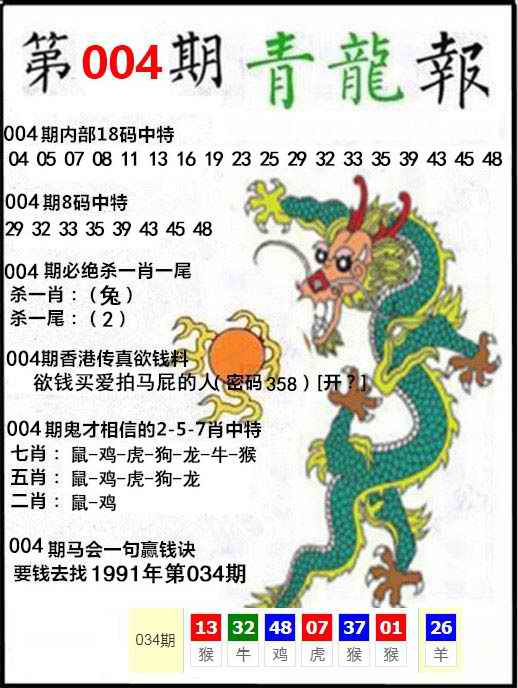 第004期青龍報
004期内部18码中特
04 05 07 08 11 13 16 19 23 25 29 32 33 35 39 43 45 48
004期8码中特
29 32 33 35 39 43 45 48
004期必绝杀一肖一尾
杀一肖：（兔）
杀一尾：（2）
004期香港传真欲钱料
欲钱买爱拍马屁的人（密码358）[开？]
004期鬼才相信的2-5-7肖中特
七肖：鼠-鸡-虎-狗-龙-牛-猴
五肖：鼠-鸡-虎-狗-龙
二肖：鼠-鸡
004期马会一句赢钱诀
要钱去找1991年第034期
034期 13 32 48 07 37 01 26
猴 牛 鸡 虎 猴 猴 羊